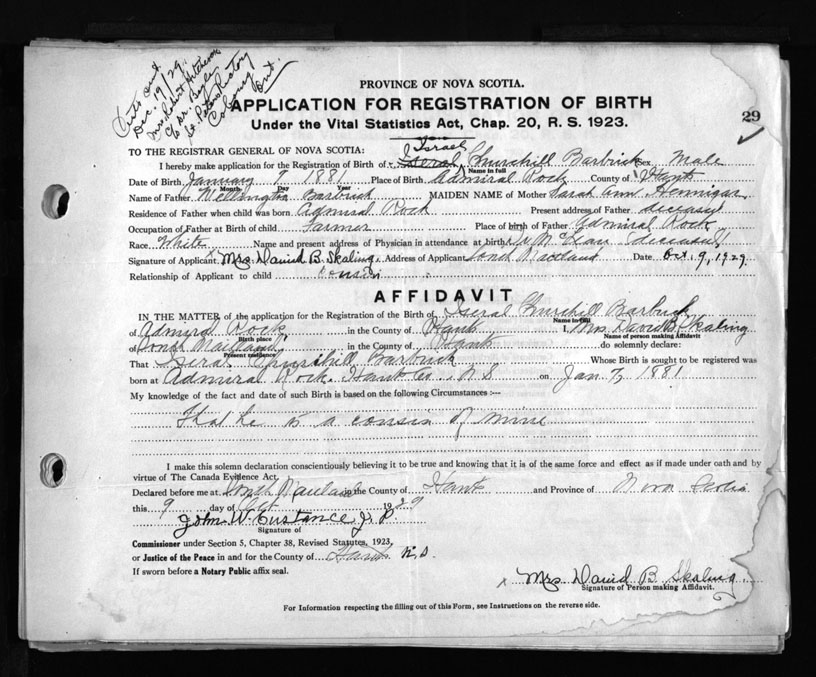 Dec. 19/29.
Mrs Robert
St. Peters Rectory
Cobourg
Ont.
PROVINCE OF NOVA SCOTIA.
APPLICATION FOR REGISTRATION OF BIRTH
29
Under the Vital Statistics Act, Chap. 20, R. S. 1923.
Israel
TO THE REGISTRAR GENERAL OF NOVA SCOTIA:
I hereby make application for the Registration of Birth of Iseral Churchill Barbrick Sex Male
Name in full
Date of Birth January 7 1881 Place of Birth Admiral Rock County of Hants
Month Day Year
Name of Father Wellington Barbrick MAIDEN NAME of Mother Sarah Ann Hennigar
Residence of Father when child was born Admiral Rock Present address of Father
Occupation of Father at Birth of child Farmer Place of birth of Father Admiral Rock
Race White Name and present address of Physician in attendance at birth Dr McLean (deceased)
Signature of Applicant Mrs. David B. Skaling. Address of Applicant South Maitland Date Oct. 9, 1929.
Relationship of Applicant to child cousin
AFFIDAVIT
IN THE MATTER of the application for the Registration of Birth of Iseral Churchill Barbrick
Name in full
of Admiral Rock in the County of Hants I, Mrs. David B. Skaling
Birth place Name of person making Affidavit
of South Maitland in the County of Hants do solemnly declare:
Present residence
That Iseral Churchill Barbrick Whose Birth is sought to be registered was
born at Admiral Rock. Hants Co. N S on Jan 7, 1881
My knowledge of the fact and date of such Birth is based on the following Circumstances :—
That he is a cousin of mine
I make this solemn declaration conscientiously believing it to be true and knowing that it is of the same force and effect as if made under oath and by
virtue of The Canada Evidence Act.
Declared before me at South Maitland in the County of Hants and Province of Nova Scotia
this 9 day of Oct 1929
John W. Custance J. P.
Signature of
Commissioner under Section 5, Chapter 38, Revised Statutes, 1923,
or Justice of the Peace in and for the County of Hants N.S.
If sworn before a Notary Public affix seal.
Mrs. David B. Skaling.
Signature of Person making Affidavit.
For Information respecting the filling out of this Form, see Instructions on the reverse side.